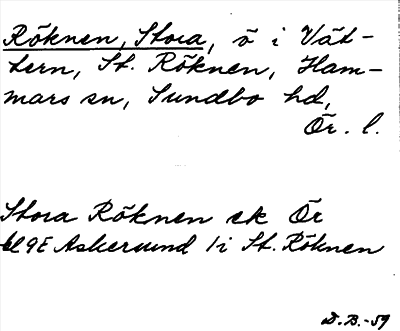 Röknen, Stora, ö i Vät-
tern, St. Röknen, Ham-
mars sn, Sundbo hd,
Ör. l.
Stora Röknen ek Ör
bl 9E Askersund 1/i St. Röknen
D.B.-59